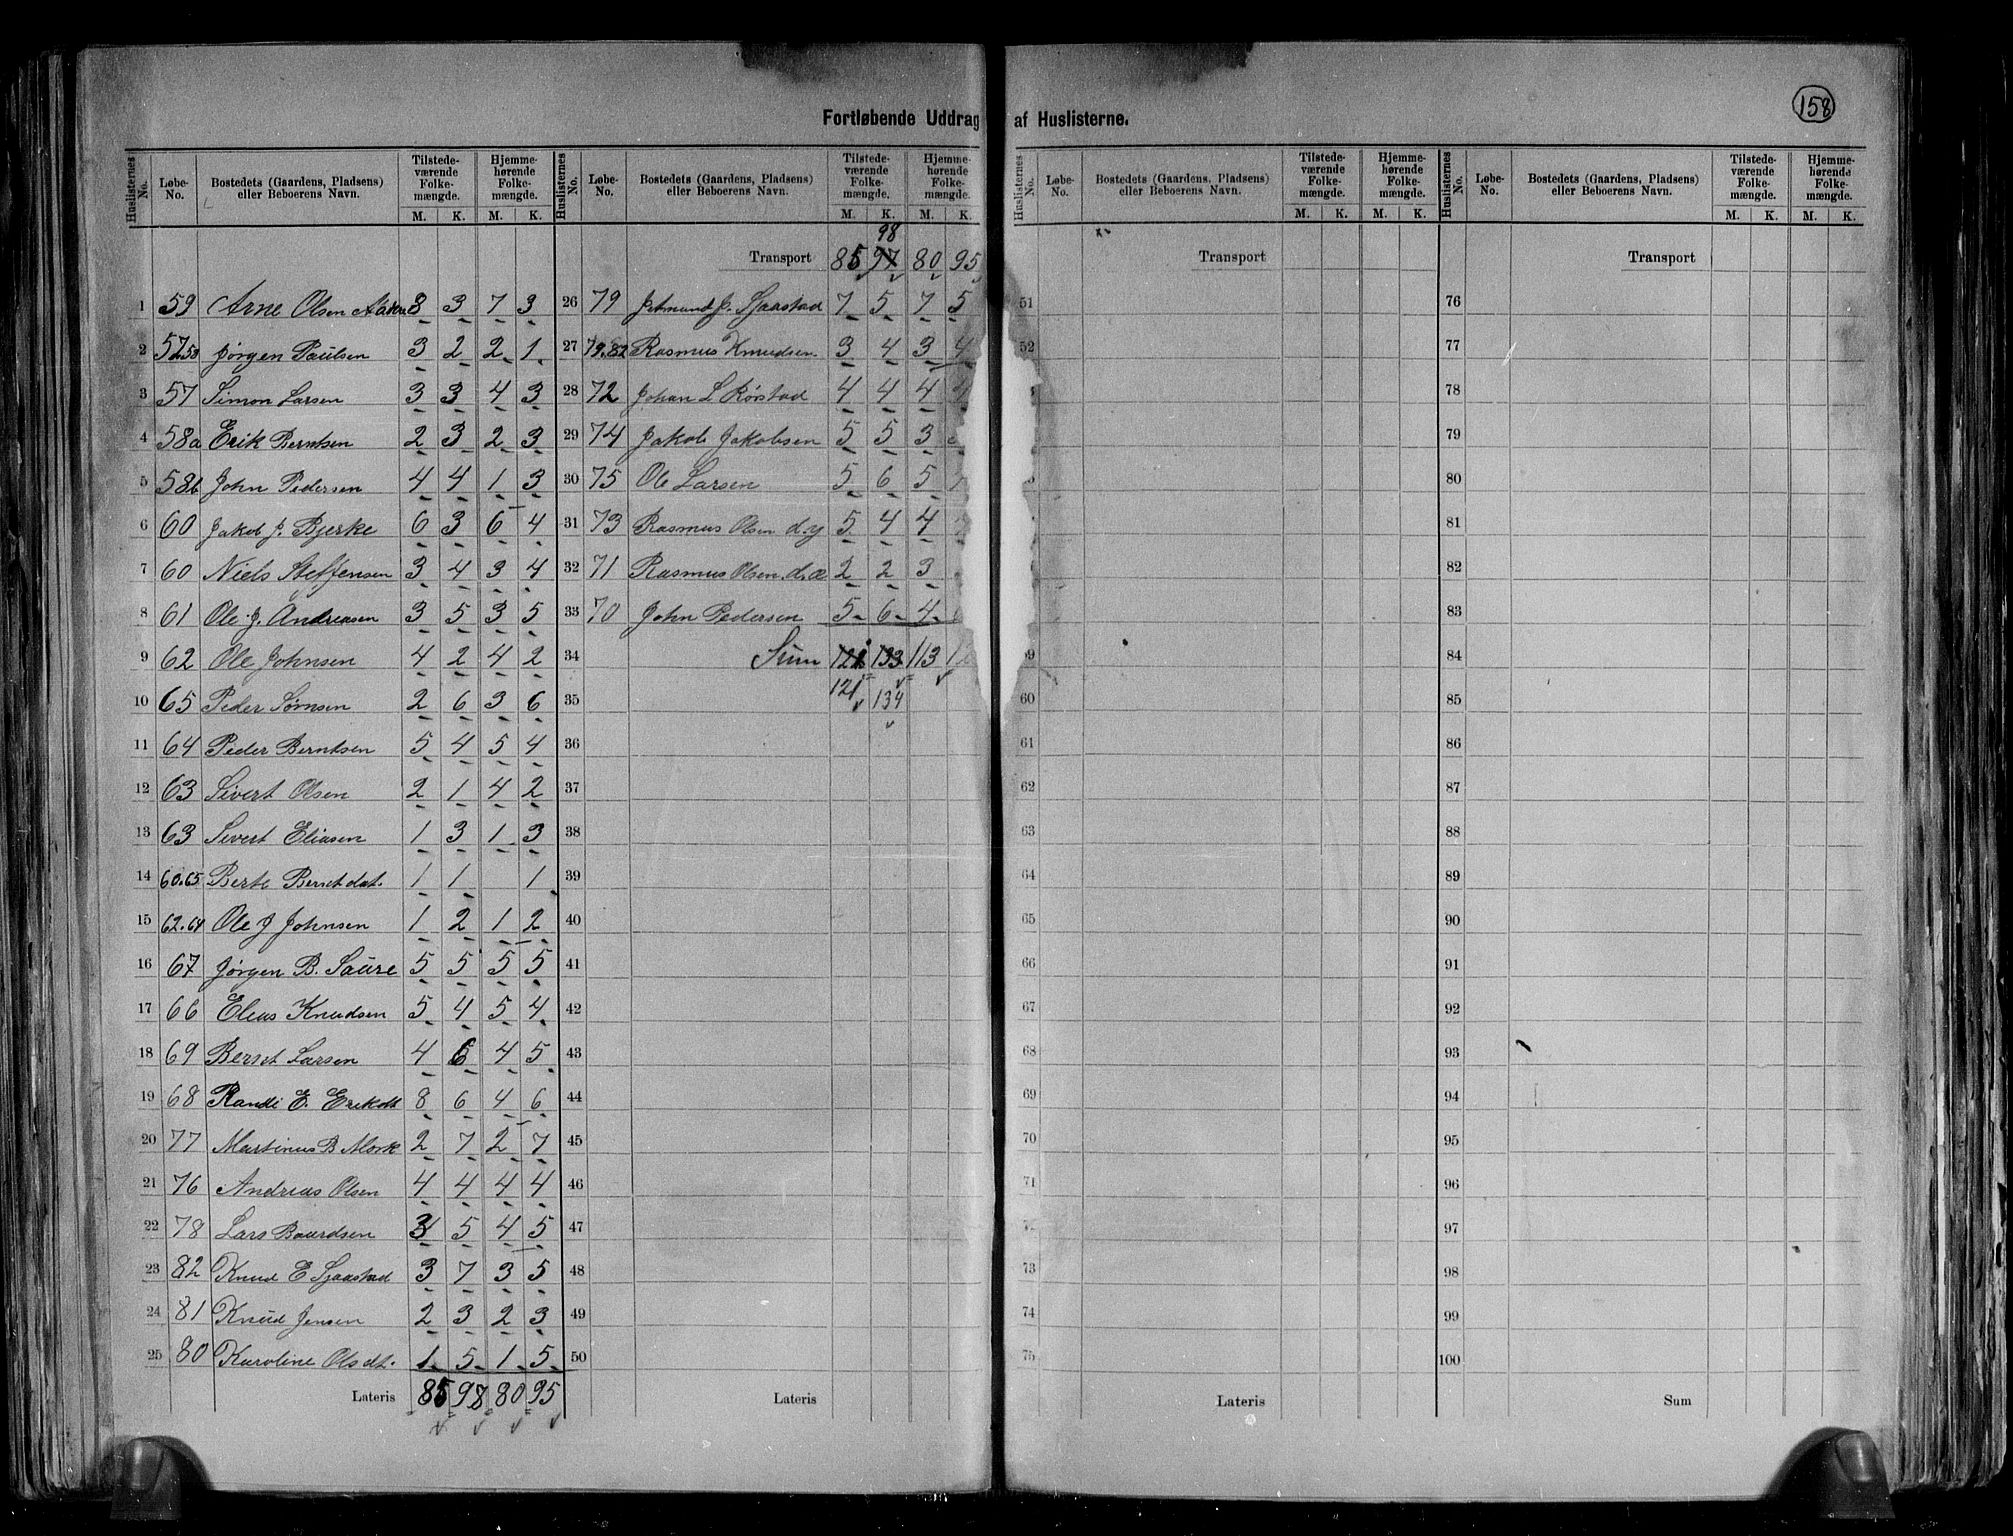 158
Fortløbende Uddrag af Huslisterne.
Huslisternes No. | Løbe-No. | Bostedets (Gaardens, Pladsens) eller Beboerens Navn. | Tilstedeværende Folkemængde. M. K. | Hjemmehørende Folkemængde. M. K.
1 59 Arne Olsen 8 3 7 3
2 57.58 Jørgen Paulsen 3 2 2 1
3 57 Simon Larsen 3 3 4 3
4 58a Erik Berntsen 2 3 2 3
5 58b John Pedersen 4 4 1 3
6 60 Jakob J. Bjerke 6 3 6 4
7 60 Niels Steffensen 3 4 3 4
8 61 Ole J. Andreasen 3 5 3 5
9 62 Ole Johnsen 4 2 4 2
10 65 Peder Sørnsen 2 6 3 6
11 64 Peder Berntsen 5 4 5 4
12 63 Sivert Olsen 2 1 4 2
13 63 Sivert Eliasen 1 3 1 3
14 60.65 Berte Berntdat. 1 1 1
15 62.64 Ole J Johnsen 1 2 1 2
16 67 Jørgen B. Saure 5 5 5 5
17 66 Elias Knudsen 5 4 5 4
18 69 Bernt Larsen 4 6 4 5
19 68 Randi E. Eriksdt 8 6 4 6
20 77 Martinus B Mork 2 7 2 7
21 76 Andreas Olsen 4 4 4 4
22 78 Lars Baardsen 3 5 4 5
23 82 Knud E Sjaastad 3 7 3 5
24 81 Knud Jensen 2 3 2 3
25 80 Karoline Olsdt. 1 5 1 5
Lateris 85 98 80 95
Huslisternes No. | Løbe-No. | Bostedets (Gaardens, Pladsens) eller Beboerens Navn. | Tilstedeværende Folkemængde. M. K. | Hjemmehørende Folkemængde. M. K.
98
Transport 85 97 80 95
26 79 J. Sjaastad 7 5 7 5
27 79.82 Rasmus Knudsen 3 4 3 4
28 72 Johan L Rørstad 4 4 4
29 74 Jakob Jakobsen 5 5 3
30 75 Ole Larsen 5 6 5
31 73 Rasmus Olsen d.y 5 4 4
32 71 Rasmus Olsen d.æ 2 2 3
33 70 John Pedersen 5 6 4
34 Sum 121 133 113
35 121 134
36
37
38
39
40
41
42
43
44
45
46
47
48
49
50
Lateris
Huslisternes No. | Løbe-No. | Bostedets (Gaardens, Pladsens) eller Beboerens Navn. | Tilstedeværende Folkemængde. M. K. | Hjemmehørende Folkemængde. M. K.
Transport
51
52
60
61
62
63
64
65
66
67
68
69
70
71
73
74
75
Lateris
Huslisternes No. | Løbe-No. | Bostedets (Gaardens, Pladsens) eller Beboerens Navn. | Tilstedeværende Folkemængde. M. K. | Hjemmehørende Folkemængde. M. K.
Transport
76
77
78
79
80
81
82
83
84
85
86
87
88
89
90
91
92
93
94
95
96
97
98
99
100
Sum